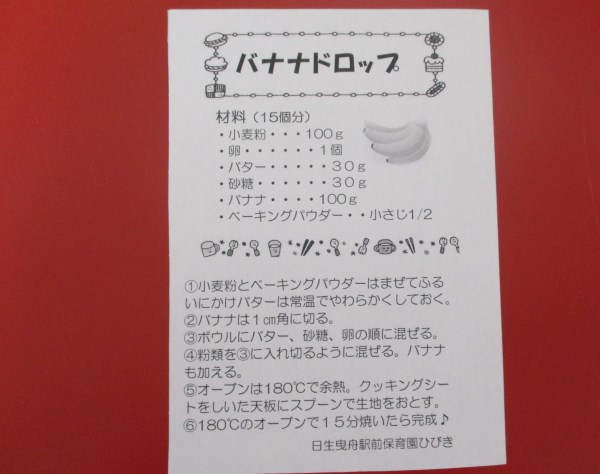 バナナドロップ
材料（15個分）
・小麦粉・・・100ｇ
・卵・・・・・・1個
・バター・・・・・30ｇ
・砂糖・・・・・・30ｇ
・バナナ・・・・100ｇ
・ベーキングパウダー・・小さじ1/2
①小麦粉とベーキングパウダーはまぜてふる
いにかけバターは常温でやわらかくしておく。
②バナナは１㎝角に切る。
③ボウルにバター、砂糖、卵の順に混ぜる。
④粉類を③に入れ切るように混ぜる。バナナ
も加える。
⑤オーブンは180℃で余熱。クッキングシー
トをしいた天板にスプーンで生地をおとす。
⑥180℃のオーブンで１５分焼いたら完成♪
日生曳舟駅前保育園ひびき